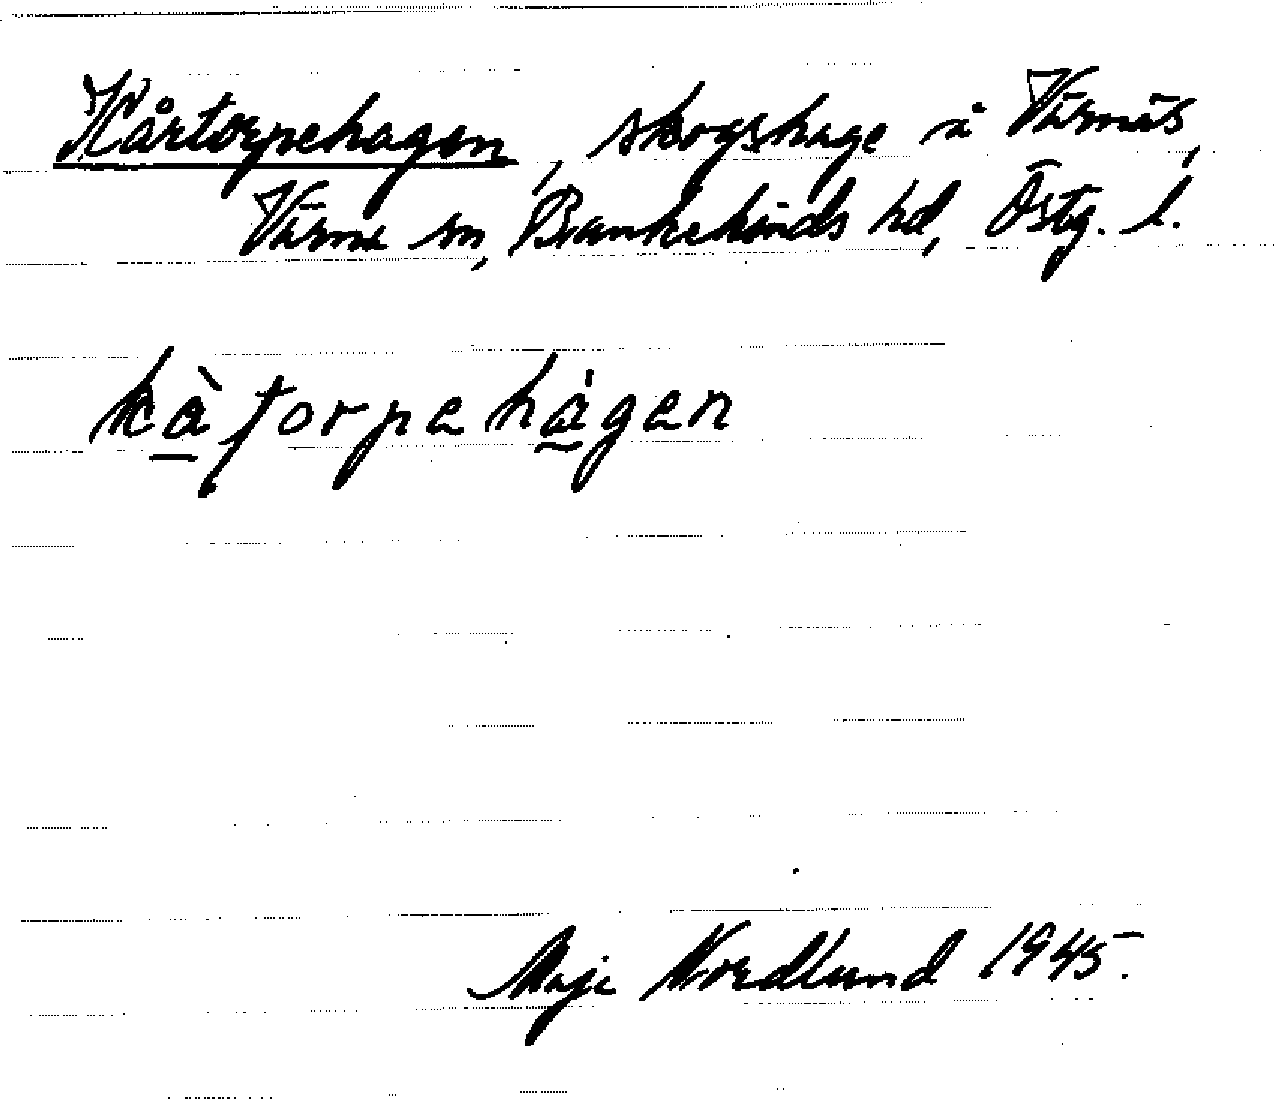 Kårtorpehagen, skogshage å Värnäs,
Värna sn, Bankekinds hd, Östg. l.
kå̀torpehágen
Maja Nordlund 1945.